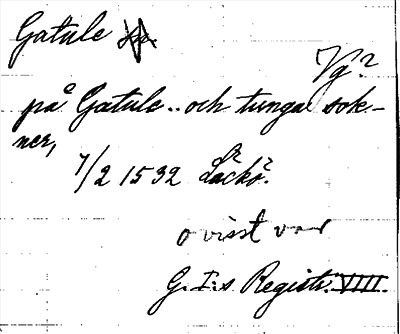 Gatule
Vg?
på Gatule.. och tunga sok-
ner,
7/2 1532 Läckö?
ovisst var
G. I:s Registr. VIII.